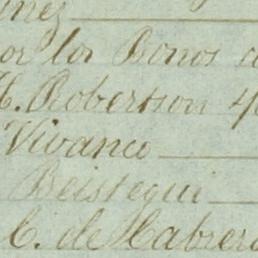 or los Bonos
H. Robertson 4
Vivanco
Beistegui
C. de Cabrera